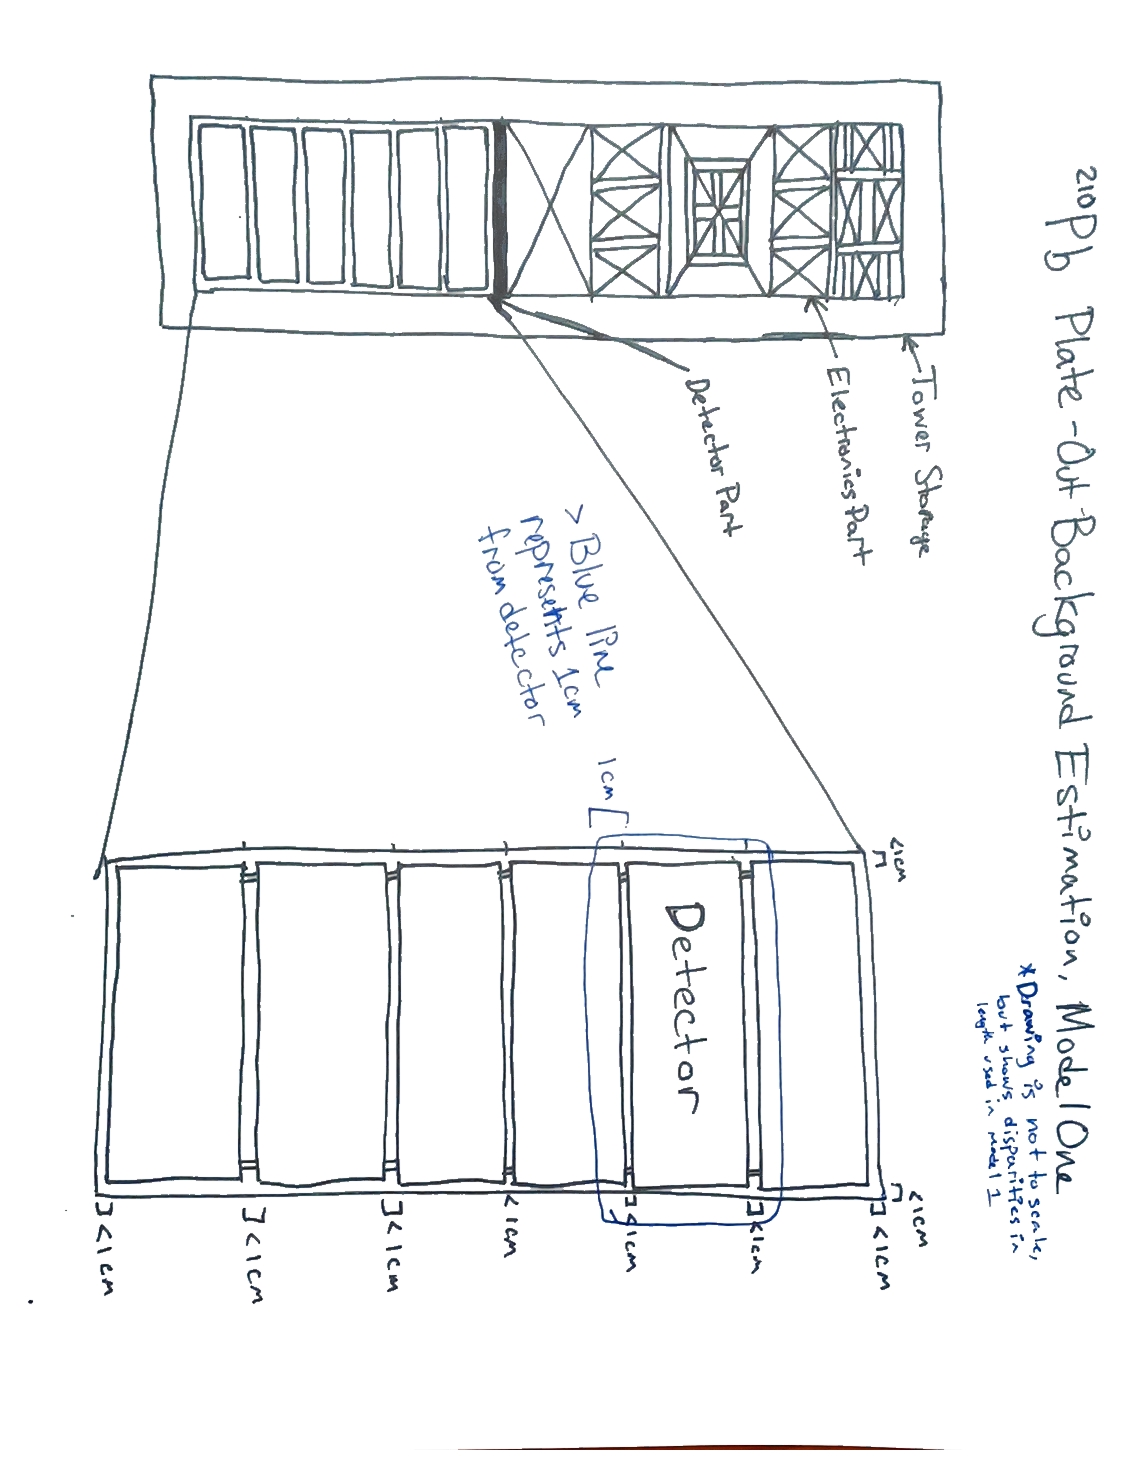 210Pb Plate-Out Background Estimation, Model One
*Drawing is not to scale,
but shows disparities in
length used in Model 1
Tower Storage
Electronics Part
Detector Part
> Blue line
represents 1cm
from detector
1cm
<1cm
<1cm
Detector
<1cm
<1cm
<1cm
<1cm
<1cm
<1cm
<1cm